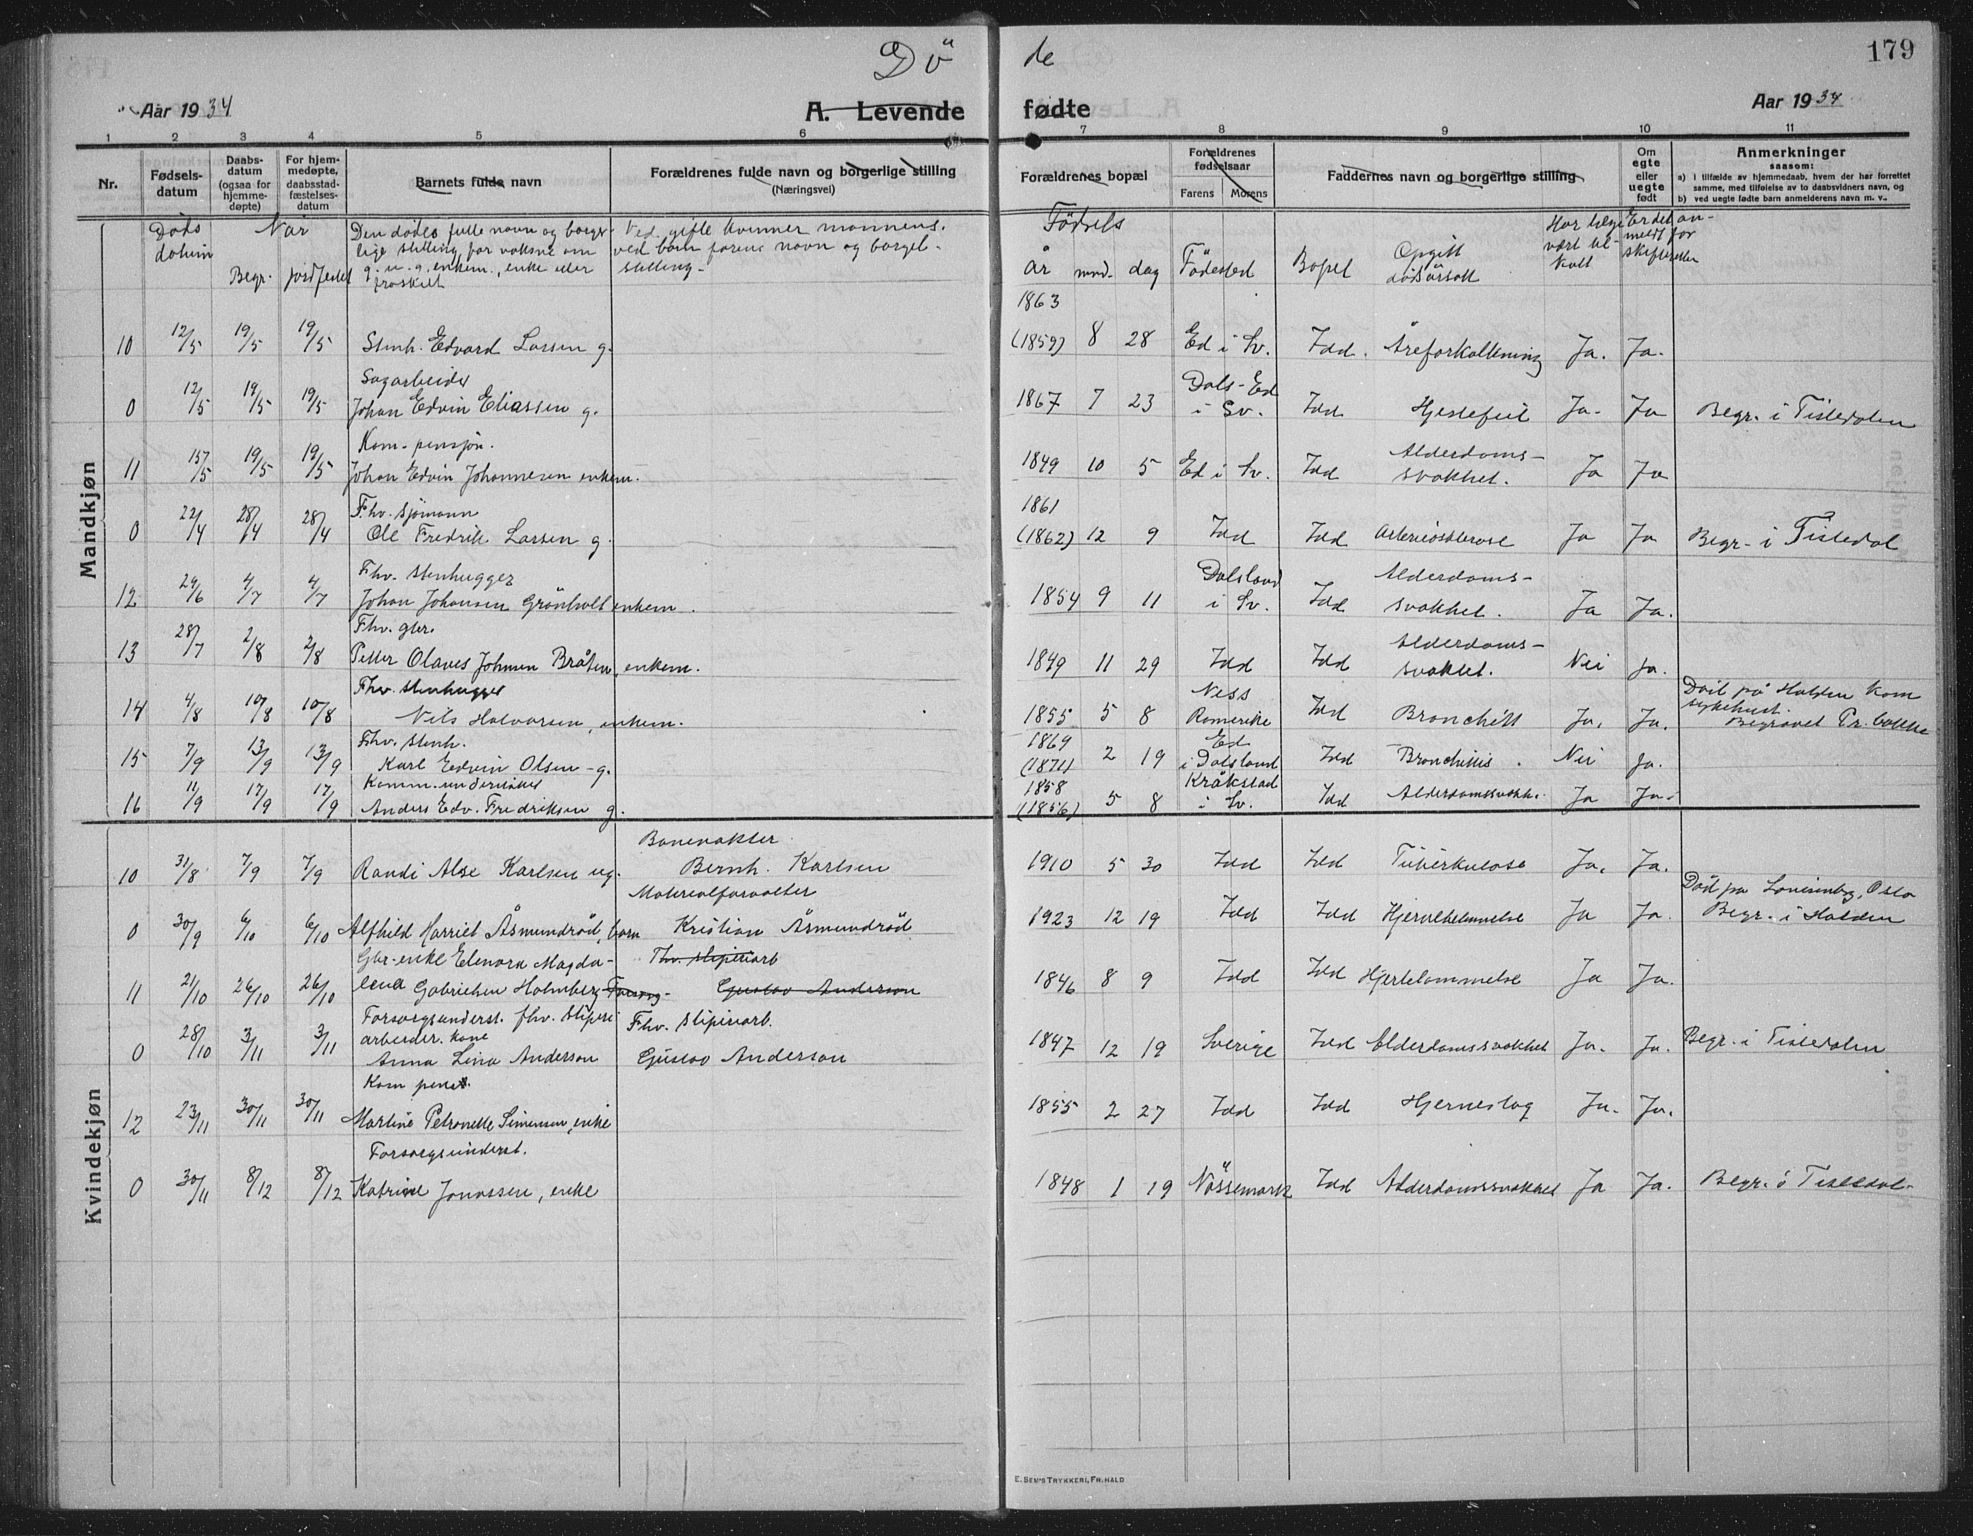 Dö de
179
Aar 1934
A. Levende fødte
Aar 1934
1 2 3 4 5 6 7 8 9 10 11
Nr.
Fødsels-
datum
Daabs-
datum
(ogsaa for
hjemme-
døpte)
For hjem-
medøpte,
daabsstad-
fæstelses-
datum
Barnets fulde navn
Forældrenes fulde navn og borgerlige stilling
(Næringsvei)
Forældrenes bopæl
Forældrenes
fødselsaar
Farens Morens
Faddernes navn og borgerlige stilling
Om
egte
eller
uegte
født
Anmerkninger
saasom:
a) i tilfælde av hjemmedaab, hvem der har forrettet
samme, med tilføielse av to daabsvidners navn, og
b) ved uegte fødte barn anmelderens navn m. v..
Døds
datum
Når
Begr. jordfestet
Den dødes fulle navn og borger
lige stilling, for voksne om
g. u. g. enkem., enke eller
fraskilt
Ved gifte kvinner mannens.
ved barn farens navn og borgel.
stilling.
Födsels
år mnd. dag Födested Bopel
Opgitt
dödsårsak
Har lege
vært til-
kalt
Er det an-
meldt for
skifteretten
Mandkjøn
1863
10 12/5 19/5 19/5 Stenh. Edvard Larsen g. (1859) 8 28 Ed i Sv. Idd. Åreforkalkning Ja. Ja.
Sagarbeider
0 12/5 19/5 19/5 Johan Edvin Eliassen g. 1867 7 23 Dals-Ed i Sv. Idd Hjertefeil Ja. Ja Begr. i Tistedalen
Kom. pensjon.
11 19/5 19/5 Johan Edvin Johannesen enkem. 1849 10 5 Ed i Sv. Idd Alderdoms-
svakhet. Ja Ja
Fhv. sjömann 1861
0 22/4 28/4 28/4 Ole Fredrik Larsen g. (1862) 12 9 Idd Idd Arteriosklerose Ja Ja Begr. i Tistedal
Fhv. Stenhugger
12 29/6 4/7 4/7 Johan Johansen Grönholt enkem. 1854 9 11 Dalsland i Sv. Idd Alderdoms-
svakhet. Ja Ja.
Fhv. gbr.
13 28/7 2/8 2/8 Petter Olaves Johnsen Bråten, enkem. 1849 11 29 Idd Idd Alderdoms-
svakhet. Nei Ja.
Fhv. stenhugger
14 4/8 10/8 10/8 Nils Halvorsen, enkem. 1855 5 8 Ness Romerike Idd Bronchitt Ja. Ja. Död på Halden kom
sykehus.
Begravet Pr. bakke
Fhv. Stenh. 1869
15 7/9 13/9 13/9 Karl Edvin Olsen g. (1871) 2 19 Ed i Dalsland Idd Bronchitis. Nei Ja.
Komm. understöttet 1858
16 11/9 17/9 17/9 Anders Edv. Fredriksen g. (1856) 5 8 Kråkstad i Sv. Idd Alderdomssvakh. Ja Ja.
Kvindekjøn
Banevakter
10 31/8 7/9 7/9 Randi Alse Karlsen ug. Bernh. Karlsen 1910 5 30 Idd Idd Tuberkulose Ja. Ja.
Materialforvalter
0 30/9 6/10 6/10 Alfhild Harriet Åsmundröd, barn Kristian Åsmundröd 1923 12 19 Idd Idd Hjertelammelse Ja Ja. Död på Lovisenbg, Oslo
Begr. i Halden
Gbr. enke Elenora Magda- Fhv. sliperiarb
11 21/10 26/10 26/10 lena Gabrielsen Holmberg Gustav Anderson 1846 8 9 Idd Idd Hjertelammelse Ja Ja.
Forsorgsunderst. fhv. sliperi
arbeider. kone Fhv. sliperiarb.
0 28/10 3/11 3/11 Anna Lina Anderson Gustav Anderson 1847 12 19 Sverige Idd Alderdomssvakhet Ja. Ja. Begr. i Tistedalen
Kom pens.
12 23/11 30/11 30/11 Martine Petronelle Simensen, enke 1855 2 27 Idd Idd Hjerneslag Ja. Ja.
Forsorgsunderst.
0 30/11 8/12 8/12 Katrine Jonassen, enke 1848 1 19 Nössemark Idd Alderdomssvakhet Ja Ja. Begr. i Tistedal.
E. SEM'S TRYKKERI, FR.HALD